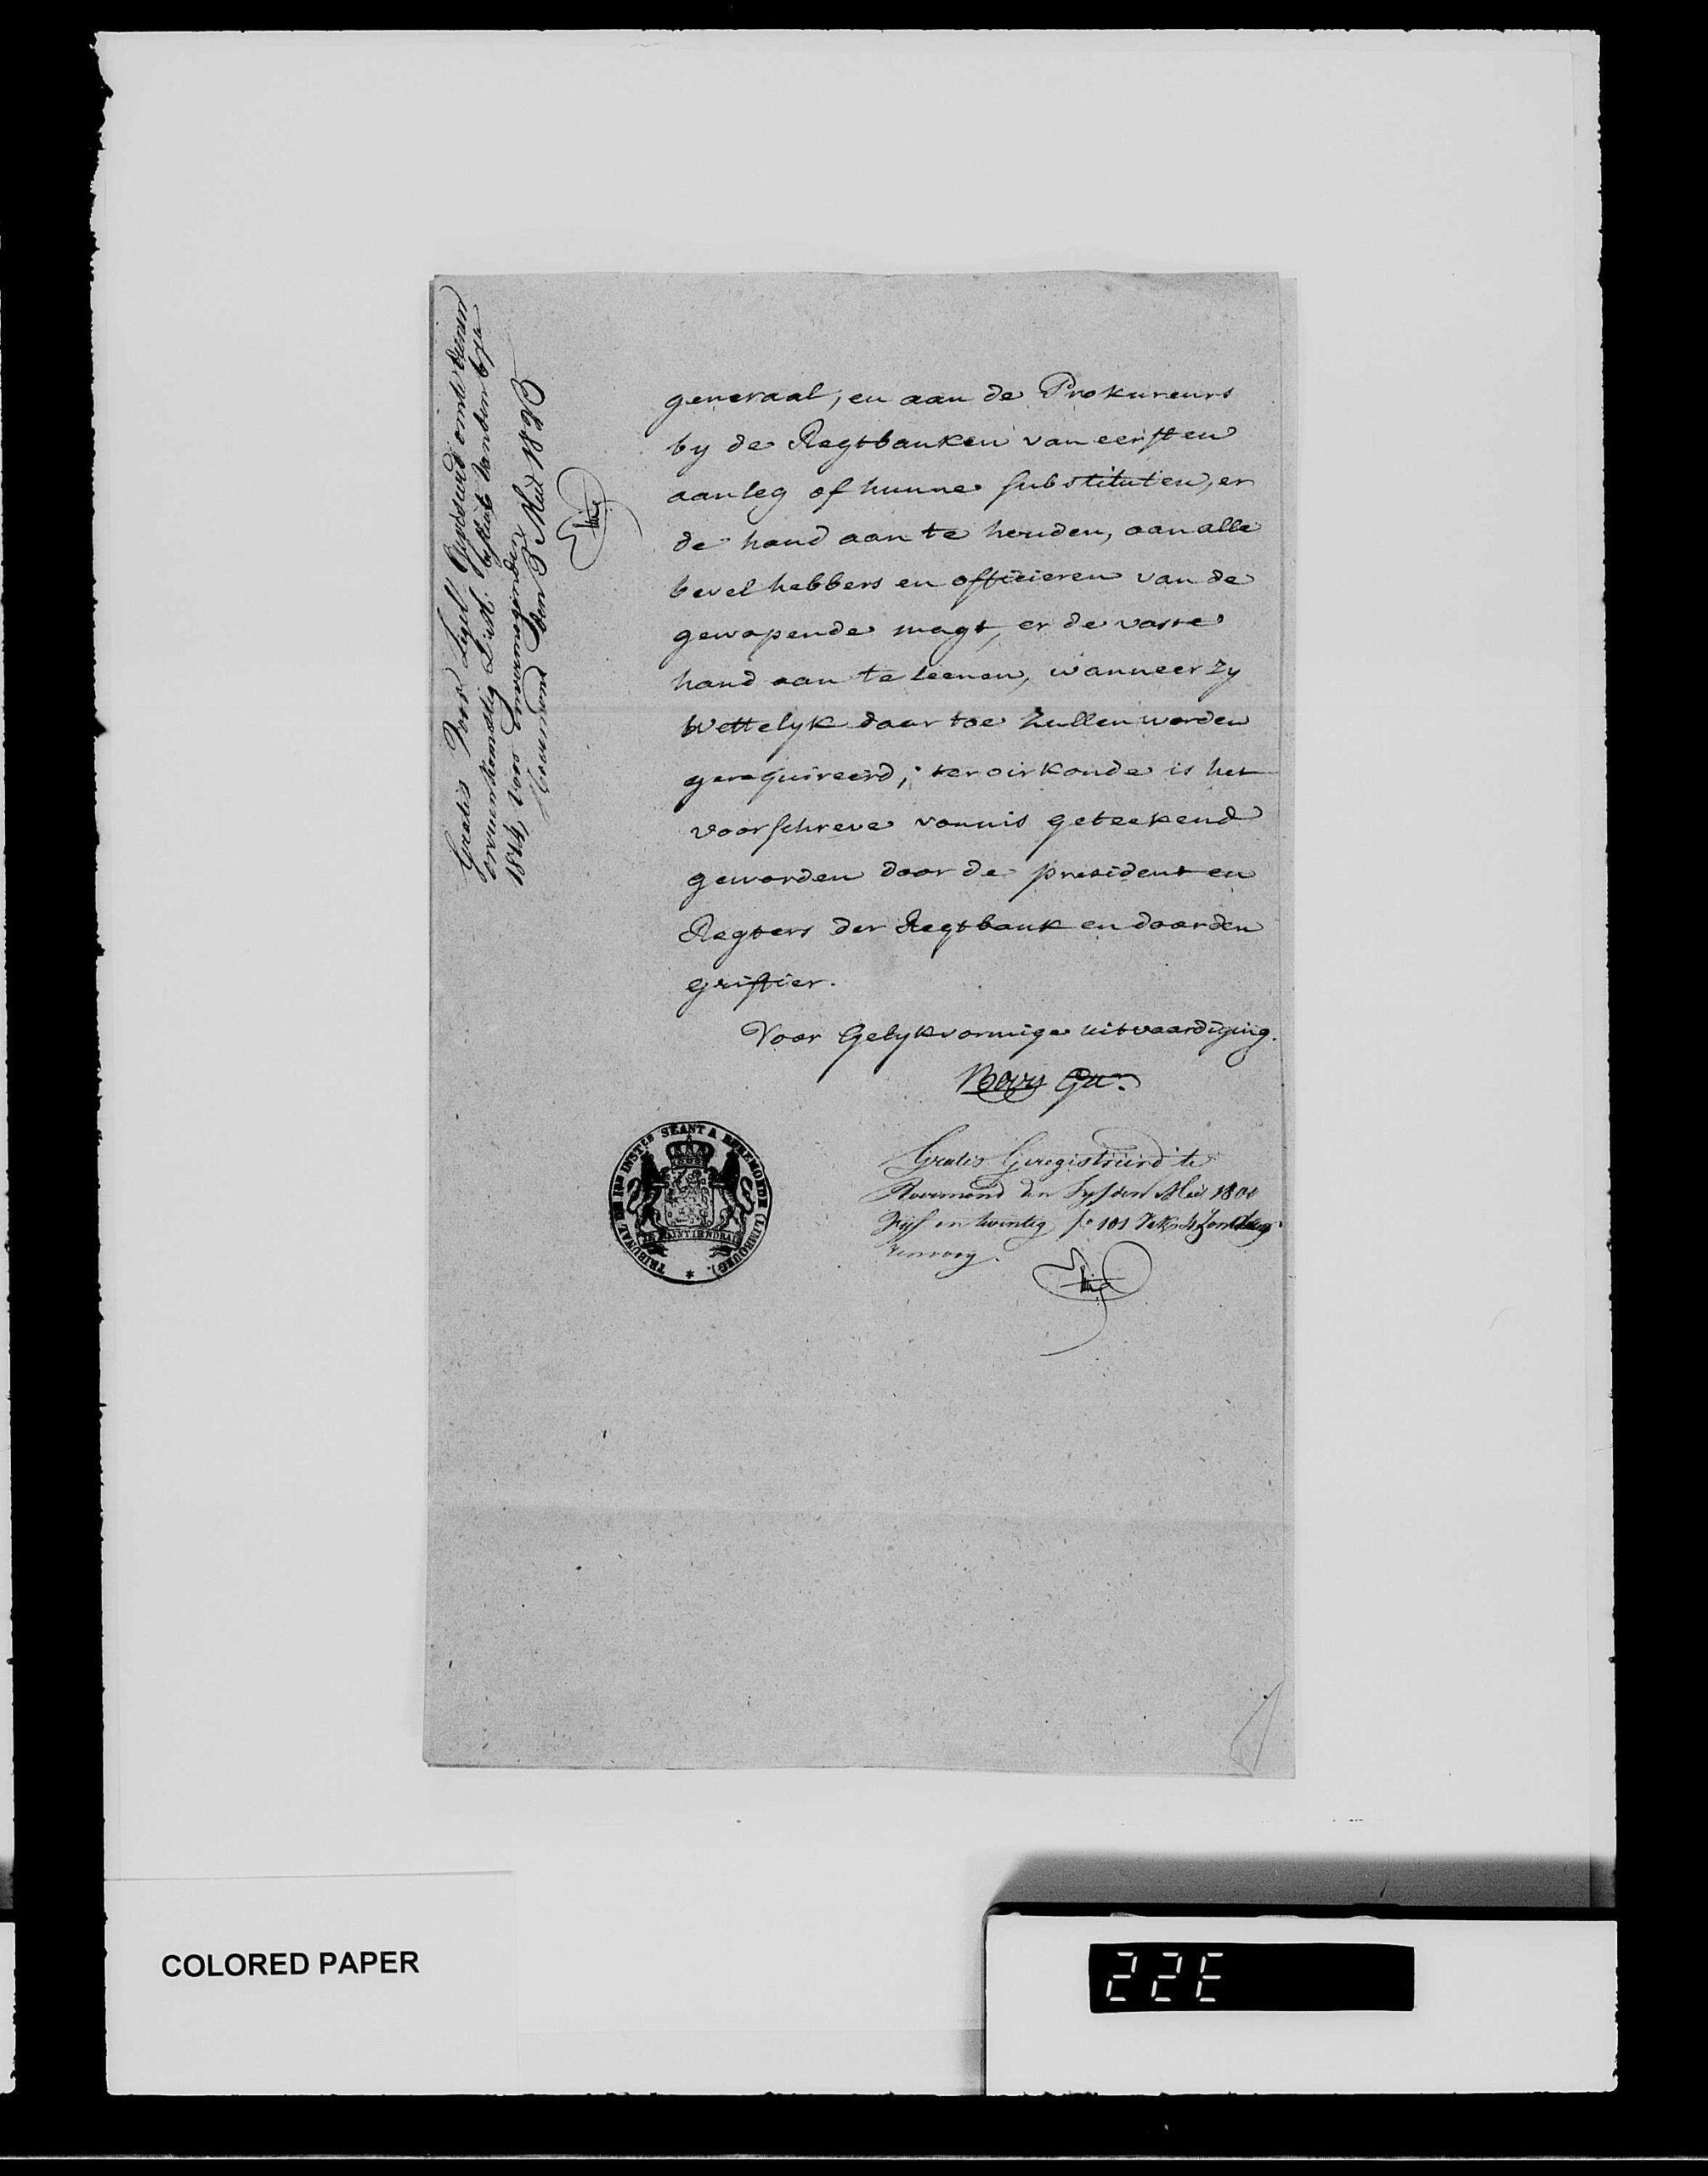 generaal, en aan de Prokureurs
by de Regtbanken van eersten
aanleg of hunne substituten, er
de hand aan te houden, aan alle
bevelhebbers en officieren van de
gewapende magt, er de vaste
hand aan te leenen, wanneer zy
wettelyk daar toe zullen worden
gerequireerd; ter oirkonde is het
voorschreve vonnis geteekend
geworden door de president en
Regters der Regtbank en door den
griffier.
Voor Gelykvormige uitvaardiging.
Gratis Geregistreerd te
Roermond den Mei 1800
Vyf en twintig f° 101
TRIBUNAL DE 1RE INSTCE SEANT A RUREMONDE (LIMBOURG). *
JE MAINTIENDRAI
Gratis Voor Zegel om te dienen
overeenkomstig besluit van den
1814, voor onvermogende
Roermond den 3 Mei 1825
COLORED PAPER
22E